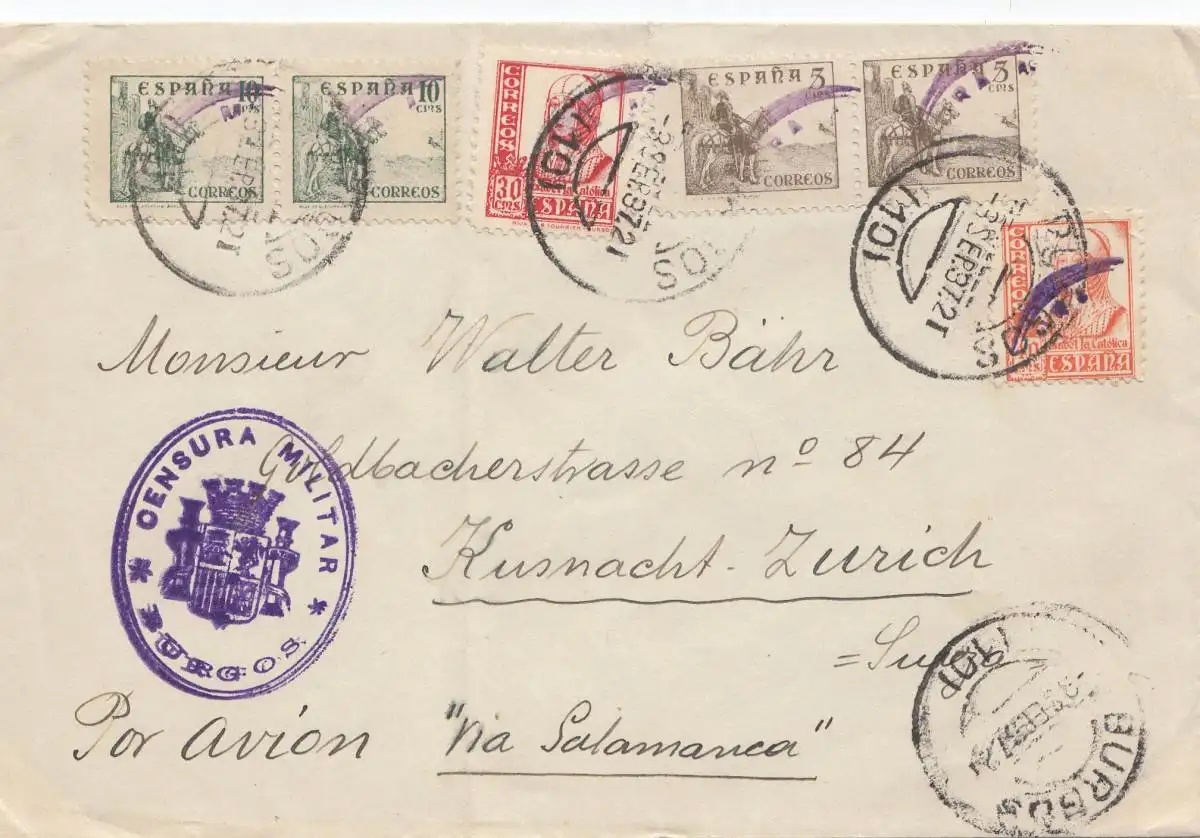 ESPAÑA 10 CMS
CORREOS
ESPAÑA 10 CMS
CORREOS
CORREOS
30 CMS
Isabel la Católica
ESPAÑA
ESPAÑA 5 CMS
CORREOS
ESPAÑA 5 CMS
CORREOS
CORREOS
Isabel la Católica
ESPAÑA
(10)
-3 SEP.37.21
(10)
-3 SEP.37.21
Monsieur Walter Bähr
Goldbacherstrasse nº 84
Kusnacht-Zurich
=Suiza
Por avión "Via Salamanca"
* CENSURA MILITAR *
BURGOS
BURGOS
(10)